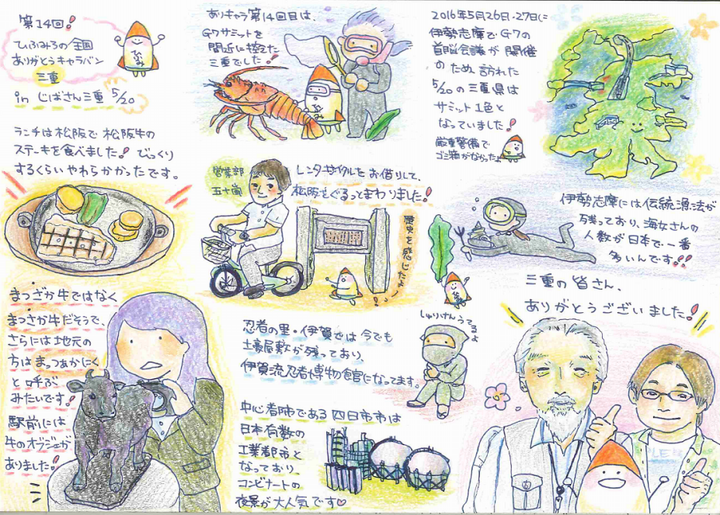 第14回!
ひふみろの全国
ありがとうキャラバン
三重
in じばさん三重 5/20
ありキャラ第14回目は、
G7サミットを
間近に控えた
三重でした!
2016年5月26日・27日に
伊勢志摩でG7の
首脳会議が開催
のため、訪れた
5/20の三重県は
サミット1色と
なっていました!
厳重警備で
ゴミ箱がなかった
ランチは松阪で松阪牛の
ステーキを食べました!びっくり
するくらいやわらかかったです。
営業部
五十嵐
レンタサイクルをお借りして、
松阪をぐるってまわりました!
歴史を感じたよ〜
伊勢志摩には伝統漁法が
残っており、海女さんの
人数が日本で一番
多いんです!!
まつざか牛ではなく
まつさか牛だそうで、
さらには地元の
方はまっつぁかにく
と呼ぶ
みたいです!
駅前には
牛のオブジェが
ありました!
忍者の里・伊賀では今でも
土蔵屋敷が残っており、
伊賀流忍者博物館になってます。
しゅりけんうてるよ
中心都市である四日市市は
日本有数の
工業都市と
なっており、
コンビナートの
夜景が大人気です♡
三重の皆さん、
ありがとうございました!